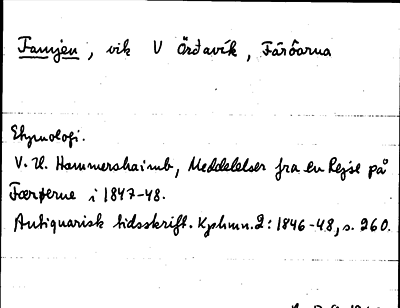 Famjen, vik V Örðavík, Färöarna
Etymologi.
V. U. Hammershaimb, Meddelelser fra en Rejse på
Færøerne i 1847-48.
Antiquarisk tidsskrift. Kphmn. 2: 1846-48, s. 260.